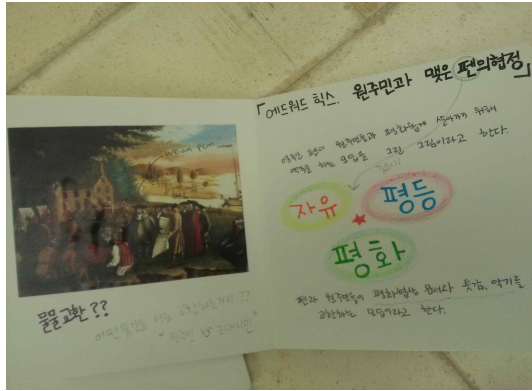 「에드워드 힉스. 원주민과 맺은 펜의협정」
펜이 원주민들과 평화롭게 살아가기 위해
약속을 하는 모습을 그린 그림이라고 한다.
자유
평등
평화
펜과 원주민들이 평화협정 문서와 옷감, 악기를
교환하는 모습이라고 한다.
물물교환??
어떤물건을
"원주민